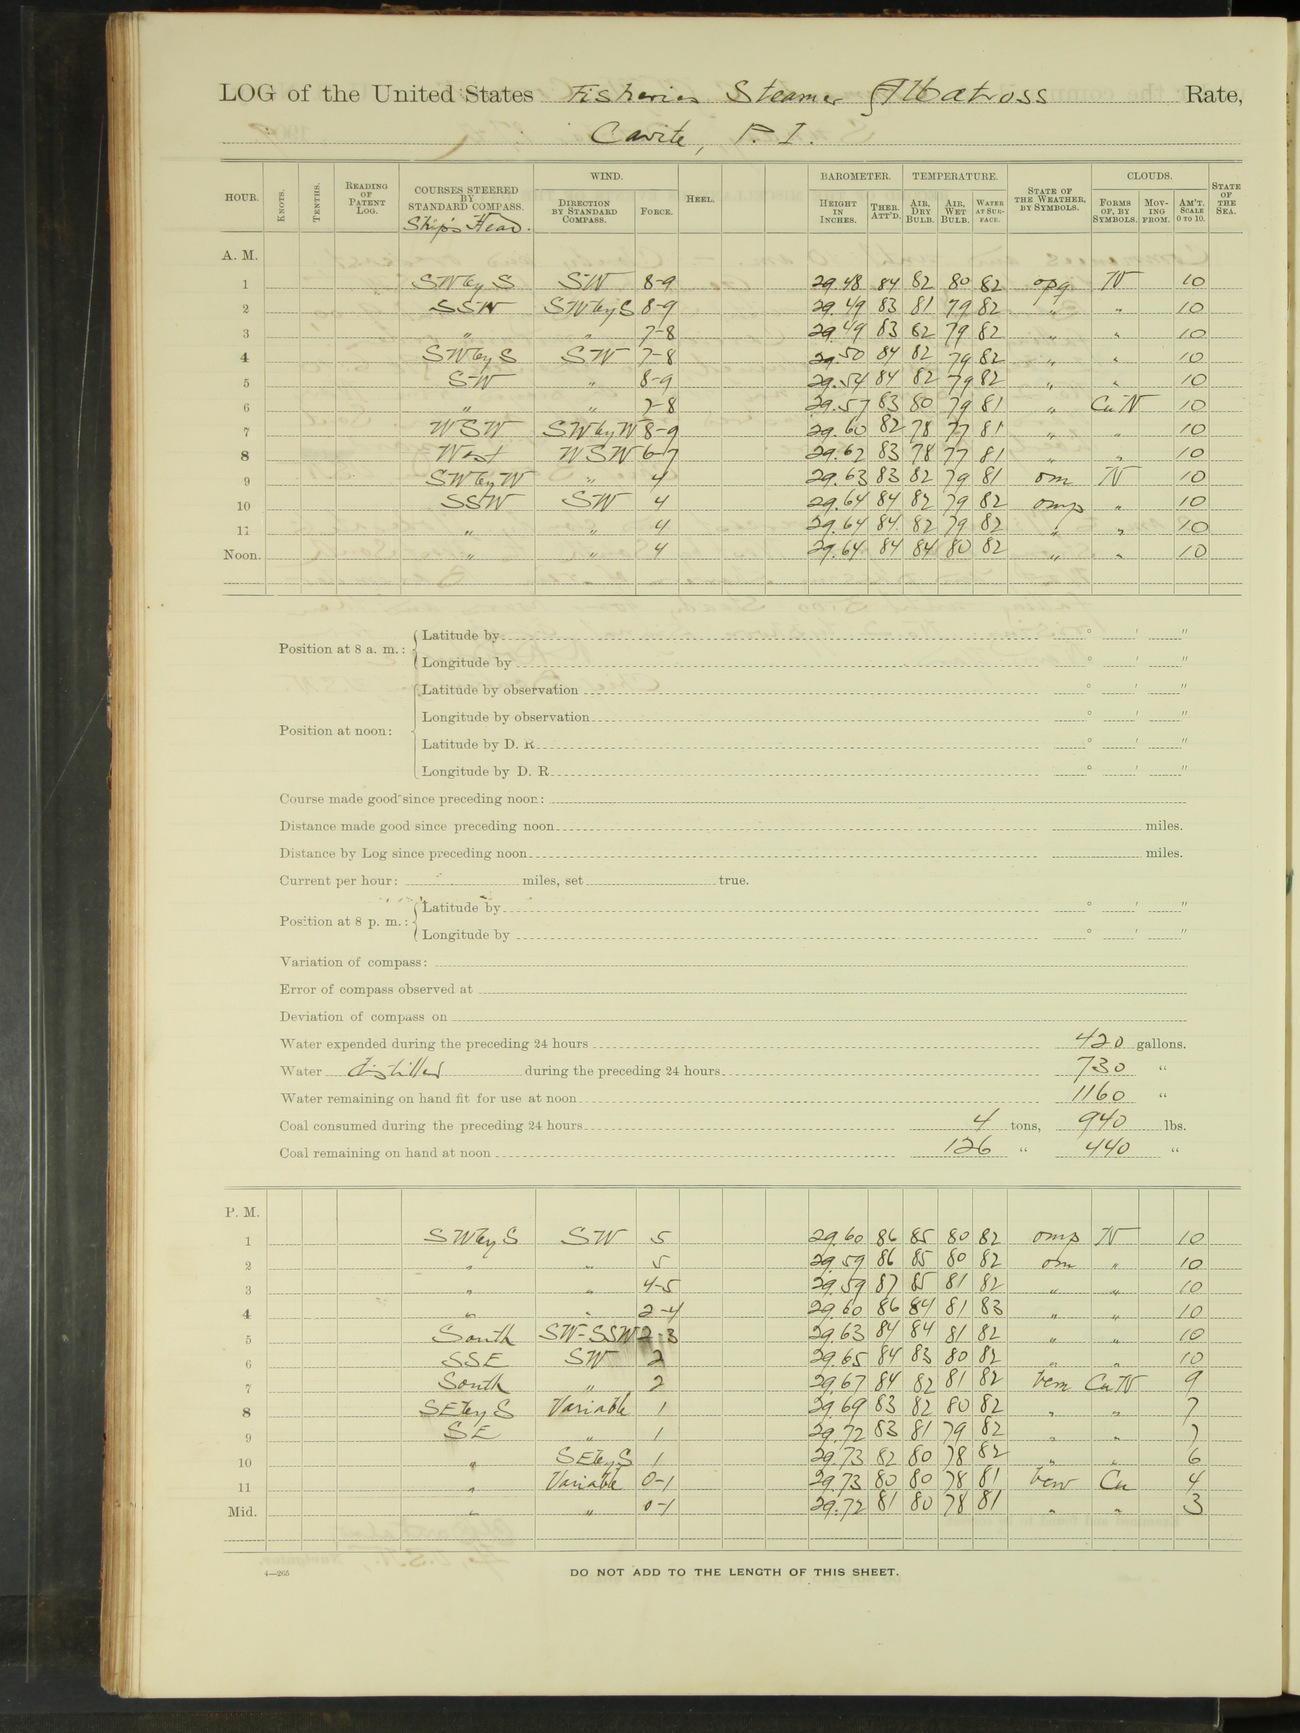 LOG of the United States Fisheries Steamer Albatross Rate,
Cavite, P. I.
HOUR. KNOTS. TENTHS. READING OF PATENT LOG. COURSES STEERED BY STANDARD COMPASS. Ship's Head. WIND. DIRECTION BY STANDARD COMPASS. FORCE. HEEL. BAROMETER. HEIGHT IN INCHES. THER. ATT'D. TEMPERATURE. AIR, DRY BULB. AIR, WET BULB. WATER AT SURFACE. STATE OF THE WEATHER, BY SYMBOLS. CLOUDS. FORMS OF, BY SYMBOLS. MOVING FROM. AM'T. SCALE 0 TO 10. STATE OF THE SEA.
A. M.
1 SW by S SW 8-9 29.48 84 82 80 82 opq N 10
2 SSW SW by S 8-9 29.49 83 81 79 82 " " 10
3 " " 7-8 29.49 83 82 79 82 " " 10
4 SW by S SW 7-8 29.50 84 82 79 82 " " 10
5 SW " 8-9 29.54 84 82 79 82 " " 10
6 " " 7-8 29.57 83 80 79 81 " Cu N 10
7 WSW SW by W 8-9 29.60 82 78 77 81 " " 10
8 West WSW 6-7 29.62 83 78 77 81 " " 10
9 SW by W " 4 29.63 83 82 79 81 om N 10
10 SSW SW 4 29.64 84 82 79 82 omp " 10
11 " " 4 29.64 84 82 79 82 " " 10
Noon. " " 4 29.64 84 84 80 82 " " 10
Position at 8 a. m.: Latitude by ° ' "
Longitude by ° ' "
Position at noon: Latitude by observation ° ' "
Longitude by observation ° ' "
Latitude by D. R. ° ' "
Longitude by D. R. ° ' "
Course made good since preceding noon:
Distance made good since preceding noon miles.
Distance by Log since preceding noon miles.
Current per hour: miles, set true.
Position at 8 p. m.: Latitude by ° ' "
Longitude by ° ' "
Variation of compass:
Error of compass observed at
Deviation of compass on
Water expended during the preceding 24 hours 420 gallons.
Water distilled during the preceding 24 hours 730 "
Water remaining on hand fit for use at noon 1160 "
Coal consumed during the preceding 24 hours 4 tons, 940 lbs.
Coal remaining on hand at noon 126 " 440 "
P. M.
1 SW by S SW 5 29.60 86 85 80 82 omp N 10
2 " " 5 29.59 86 85 80 82 om " 10
3 " " 4-5 29.59 87 85 81 82 " " 10
4 " " 2-4 29.60 86 84 81 83 " " 10
5 South SW-SSW 2-3 29.63 84 84 81 82 " " 10
6 SSE SW 2 29.65 84 83 80 82 " " 10
7 South " 2 29.67 84 82 81 82 bcm Cu N 9
8 SE by S Variable 1 29.69 83 82 80 82 " " 7
9 SE " 1 29.72 83 81 79 82 " " 7
10 " SE by S 1 29.73 82 80 78 82 " " 6
11 " Variable 0-1 29.73 80 80 78 81 bcw Cu 4
Mid. " " 0-1 29.72 81 80 78 81 " " 3
4—265 DO NOT ADD TO THE LENGTH OF THIS SHEET.